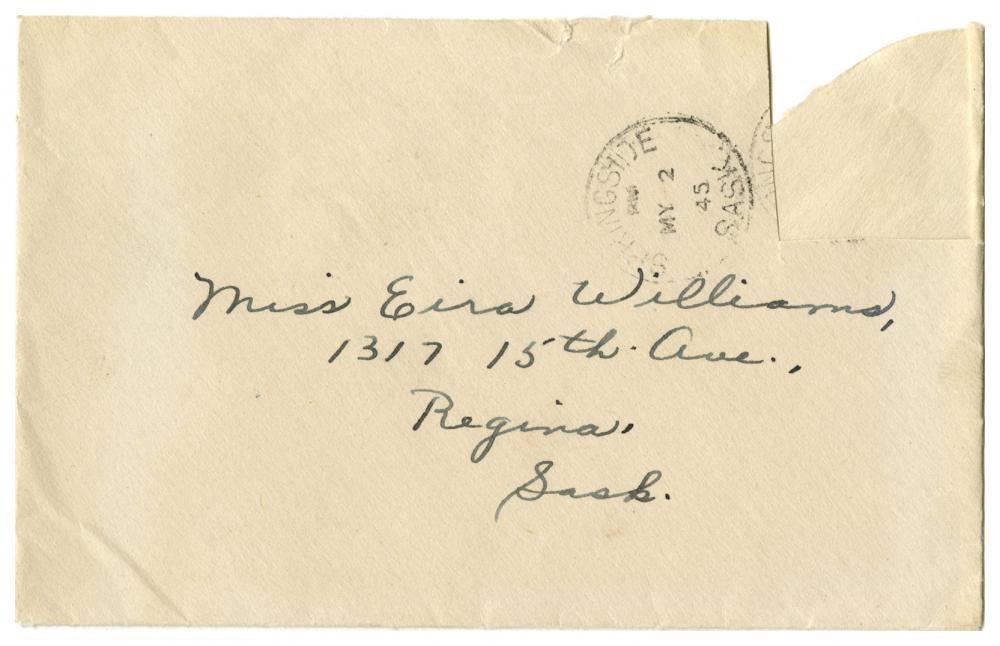 SPRINGSIDE
MY 2
45
SASK
Miss Eira Williams,
1317 15th. Ave.,
Regina,
Sask.